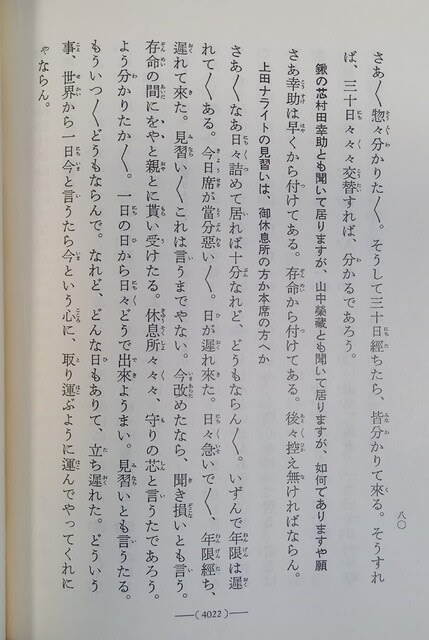 さあ／＼惣々分かりた／＼。そうして三十日經ちたら、皆分かりて來る。そうすれ
ば、三十日々々々交替すれば、分かるであろう。
鍬の芯村田幸助とも聞いて居りますが、山中榮藏とも聞いて居りますが、如何でありますや願
さあ幸助は早くから付けてある。存命から付けてある。後々控え無ければならん。
上田ナライトの見習いは、御休息所の方か本席の方へか
さあ／＼なあ日々詰めて居れば十分なれど、どうもならん／＼。いずんで年限は遲
れて／＼ある。今日席が當分惡い／＼。日が遲れ來た。日々急いで／＼、年限經ち、
遲れて來た。見習い／＼これは言うまでやない。今改めたなら、聞き損いとも言う。
存命の間にをやと親とに貰い受けたる。休息所々々々、守りの芯と言うたであろう。
よう分かりたか／＼。一日の日から日々どうで出來ようまい。見習いとも言うたる。
もういつ／＼どうもならんで。なれど、どんな日もありて、立ち遲れた。どういう
事、世界から一日今と言うたら今という心に、取り運ぶように運んでやってくれに
ゃならん。
八〇
（4022）